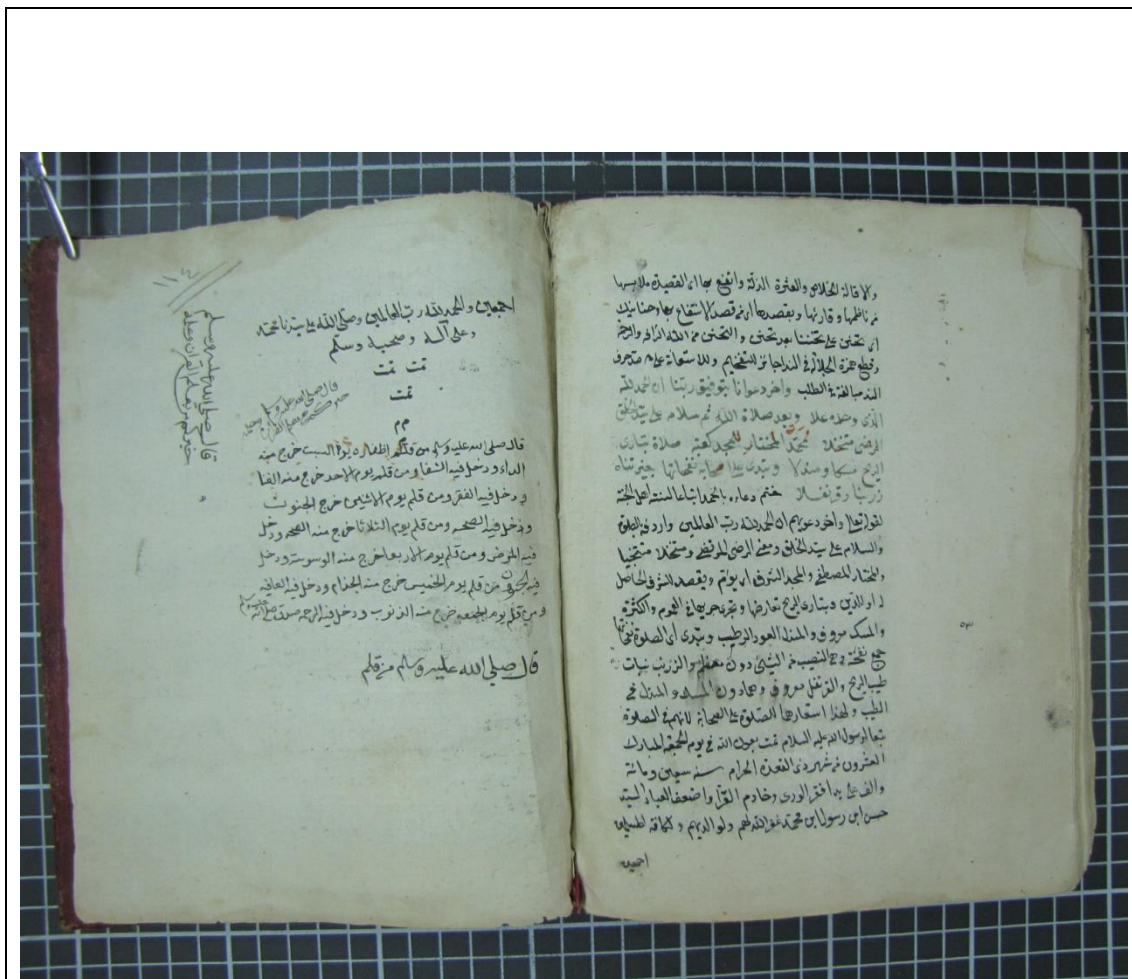 والاقالة الخلاص والعثرة الزلة وانفع بها اي القصيدة ملابسها
من ناظمها وقارئها وبقصدها اي من قصد الانتفاع بها وحنانيك
اي تحنن على تحننا بعد تحنن والتحنن من الله الرأفة والرحمة
وقطع همزة الجلالة في النداء جائز للتفخيم وللاستعانة على مد حرف
النداء مبالغة في الطلب واخر دعوانا بتوفيق ربنا ان الحمد لله
الذي وحده علا وبعد صلاة الله ثم سلامه على سيد الخلق
الرضى متنخلا محمد المختار للمجد كعبة صلاة تبارى
الريح مسكا ومندلا وتبدى على اصحابه نفحاتها بغير تناه
زرنبا وقرنفلا ختم دعاءه بالحمد اتباعا لسنة اهل الجنة
لقوله تعالى واخر دعويهم ان الحمد لله رب العالمين واردفه بالصلوة
والسلام على سيد الخلق ومعنى الرضى المرتضى ومتنخلا منتخبا
والمختار المصطفى والمجد الشرف اي يؤتم ويقصد للشرف الحاصل
في الدين وتبارى الريح تعارضها وتجرى جريها في العموم والكثرة
والمسك معروف والمندل العود الرطيب وتبدى اي الصلوة نفحاتها
جمع نفحة وهي النصيب من الشيئ دون معظمه والزرنب نبات
طيب الريح والقرنفل معروف وهما دون المسك والمندل في
الطيب ولهذا استعارهما للصلوة على الصحابة لانهم في الصلوة
تبعا لرسول الله عليه السلام تمت بعون الله في يوم الجمعة المبارك
العشرون من شهر ذى القعدة الحرام سنه سبعين ومائة
والف على يد افقر الورى وخادم القراء واضعف العباد السيد
حسن ابن رسول ابن محمد غفر الله لهم ولوالديهم ولكافة المسلمين
اجمعين
٥٣
اجمعين والحمد لله رب العالمين وصلى الله على سيدنا محمد
وعلى آله وصحبه وسلم
تمت تمت
تمت
م م
قال صلى الله عليه وسلم
قال صلى الله عليه وسلم من قلم اظفاره يوم السبت خرج منه
الداء ودخل فيه الشفا ومن قلم يوم الاحد خرج منه الغنا
ودخل فيه الفقر ومن قلم يوم الاثنين خرج الجنون
ودخل فيه الصحه ومن قلم يوم الثلاثا خرج منه الصحه ودخل
فيه المرض ومن قلم يوم الاربعا خرج منه الوسوسه ودخل
فيه الخوف ومن قلم يوم الخميس خرج منه الجذام ودخل فيه العافيه
ومن قلم يوم الجمعه خرج منه الذنوب ودخل فيه الرحمه صدق
قال صلي الله عليه وسلم من قلم
١٤
قال صلى الله عليه وسلم
خيركم من تعلم القرآن وعلمه